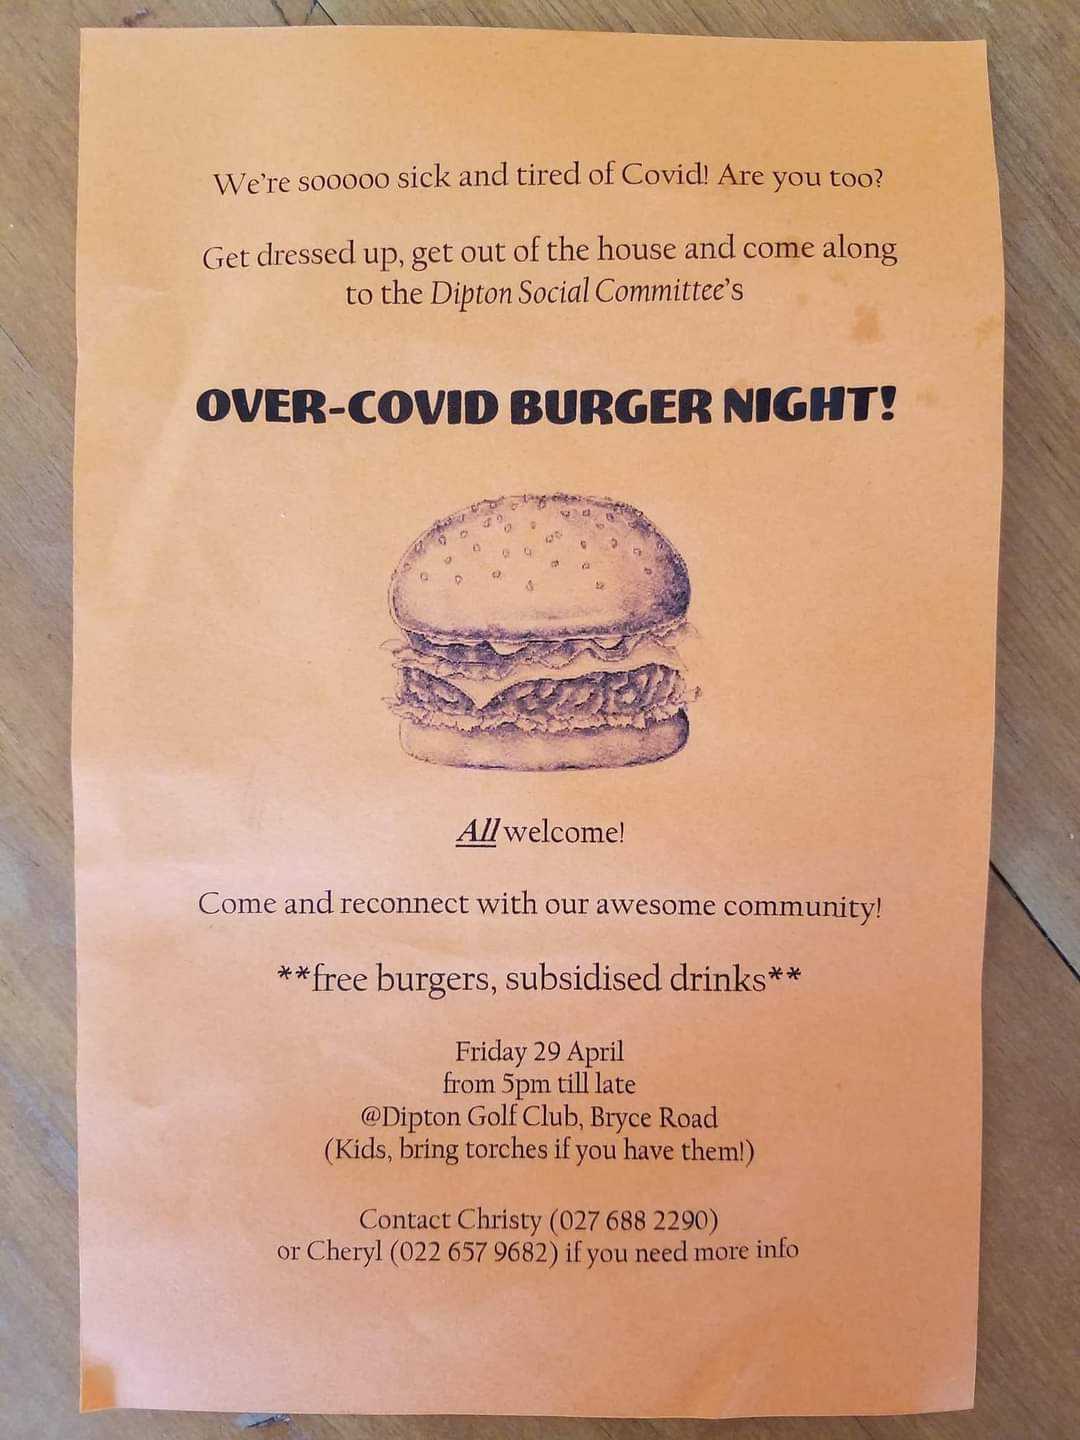 We're sooooo sick and tired of Covid! Are you too?
Get dressed up, get out of the house and come along
to the Dipton Social Committee's
OVER-COVID BURGER NIGHT!
All welcome!
Come and reconnect with our awesome community!
**free burgers, subsidised drinks**
Friday 29 April
from 5pm till late
@Dipton Golf Club, Bryce Road
(Kids, bring torches if you have them!)
Contact Christy (027 688 2290)
or Cheryl (022 657 9682) if you need more info